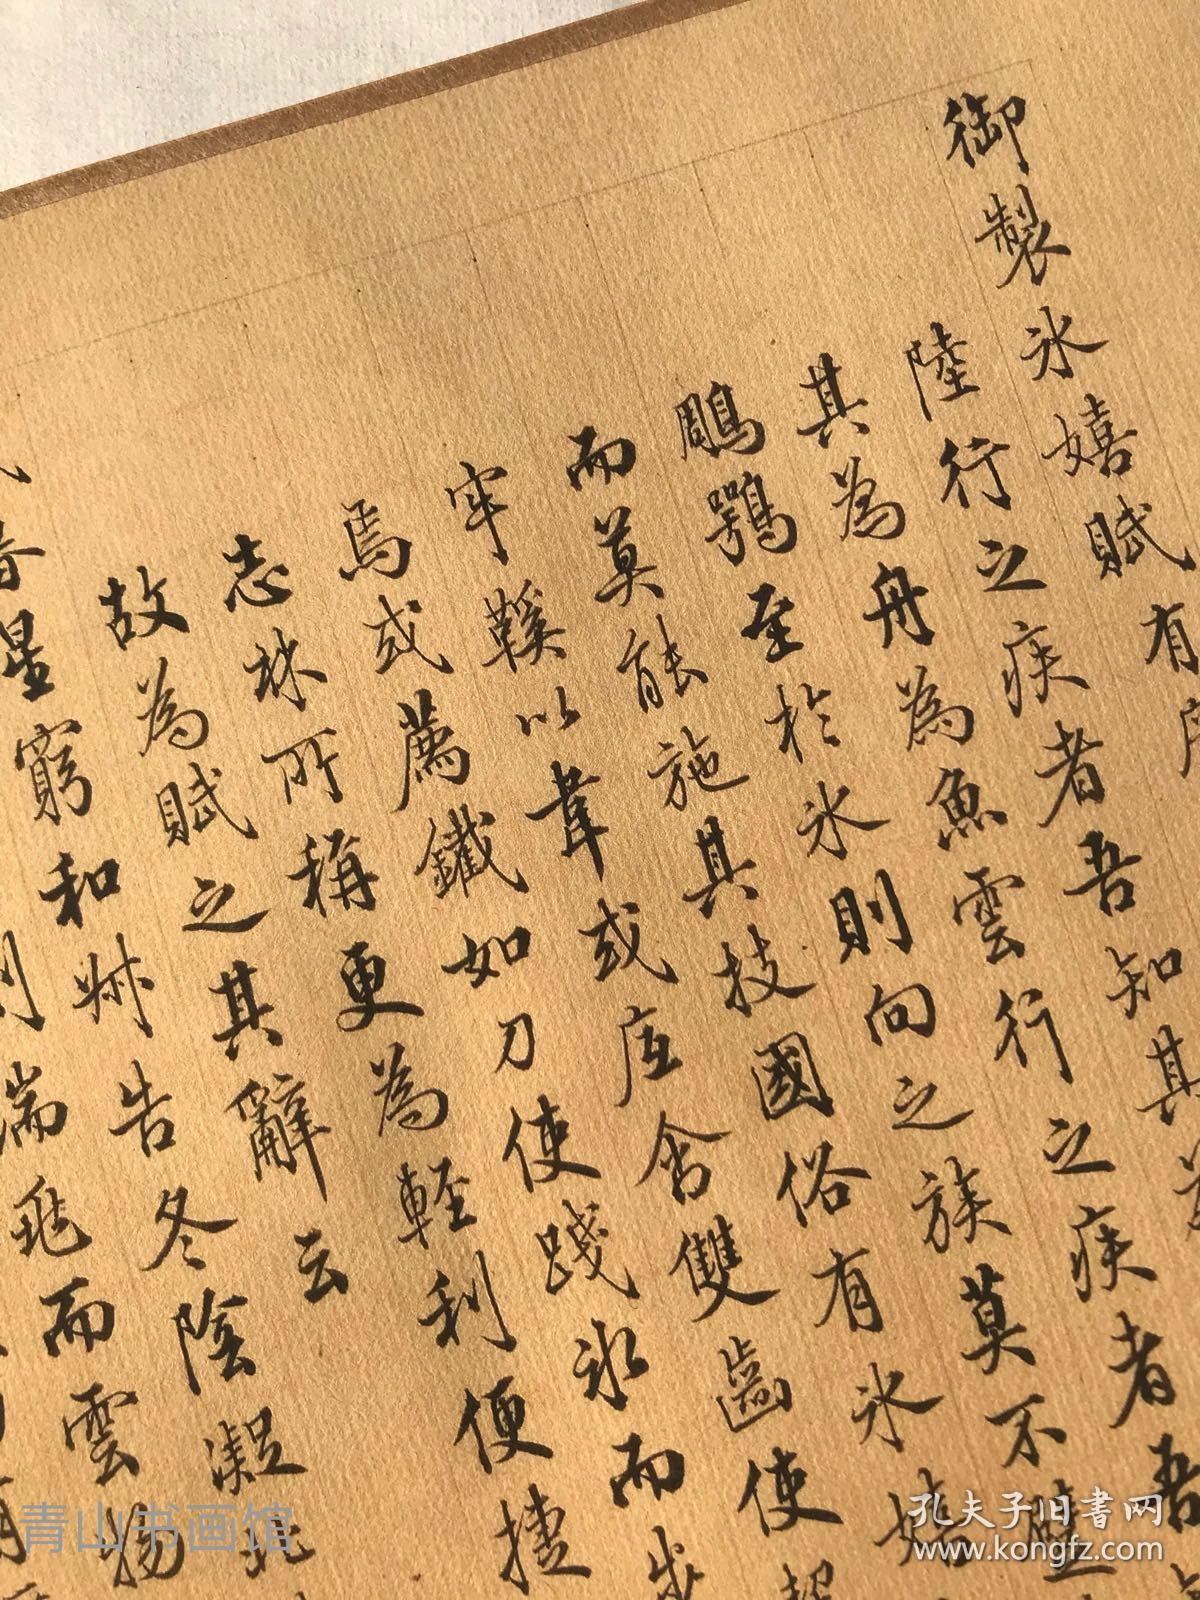 御製冰嬉賦有序
陸行之疾者吾知其為
其為舟為魚雲行之疾者吾
鵰鶚至於冰則向之族莫不躄
而莫能施其技國俗有冰嬉
牢鞵以韋或底含雙齒使
焉或薦鐵如刀使踐冰而步
志林所稱更為輕利便捷
故為賦之其辭云
星窮和叔告冬陰凝
而雲物
青山书画馆
孔夫子旧书网
www.kongfz.com